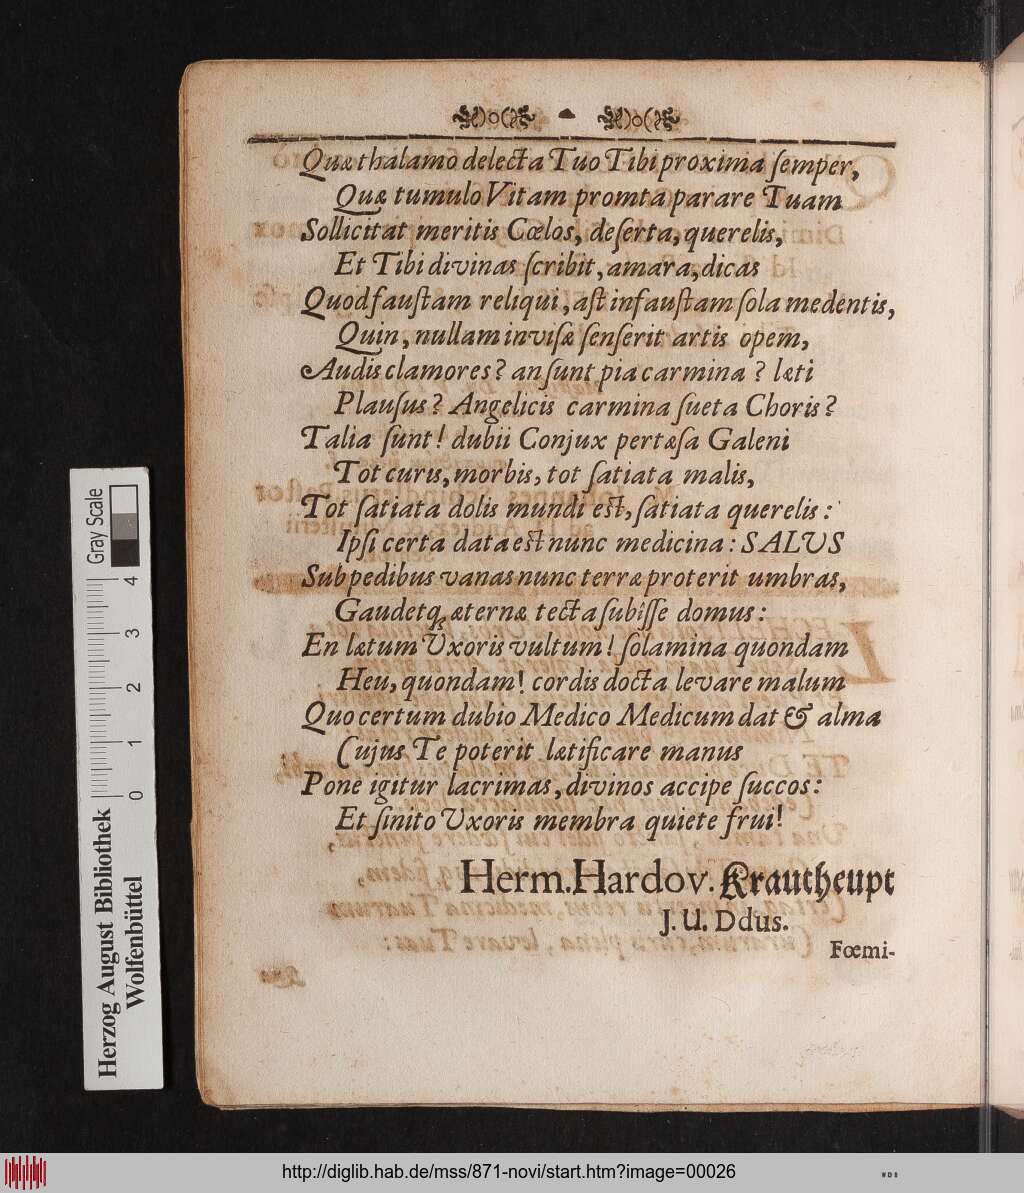 Quæ thalamo delecta Tuo Tibi proxima ſemper,
Quæ tumulo Vitam promta parare Tuam
Sollicitat meritis Cœlos, deſerta, querelis,
Et Tibi divinas ſcribit, amara, dicas
Quod fauſtam reliqui, aſt infauſtam ſola medentis,
Quin, nullam inviſæ ſenſerit artis opem,
Audis clamores? an ſunt pia carmina? læti
Plauſus? Angelicis carmina ſueta Choris?
Talia ſunt! dubii Conjux pertæſa Galeni
Tot curis, morbis, tot ſatiata malis,
Tot ſatiata dolis mundi eſt, ſatiata querelis:
Ipſi certa data eſt nunc medicina: SALUS
Sub pedibus vanas nunc terræ proterit umbras,
Gaudetq́; æternæ tecta ſubiſſe domus:
En lætum Uxoris vultum! ſolamina quondam
Heu, quondam! cordis docta levare malum
Quo certum dubio Medico Medicum dat & alma
Cujus Te poterit lætificare manus
Pone igitur lacrimas, divinos accipe ſuccos:
Et ſinito Uxoris membra quiete frui!
Herm. Hardov. Krautheupt
J. U. Ddus.
Fœmi-
Gray Scale
4
3
2
1
0
Herzog August Bibliothek
Wolfenbüttel
http://diglib.hab.de/mss/871-novi/start.htm?image=00026
WDB